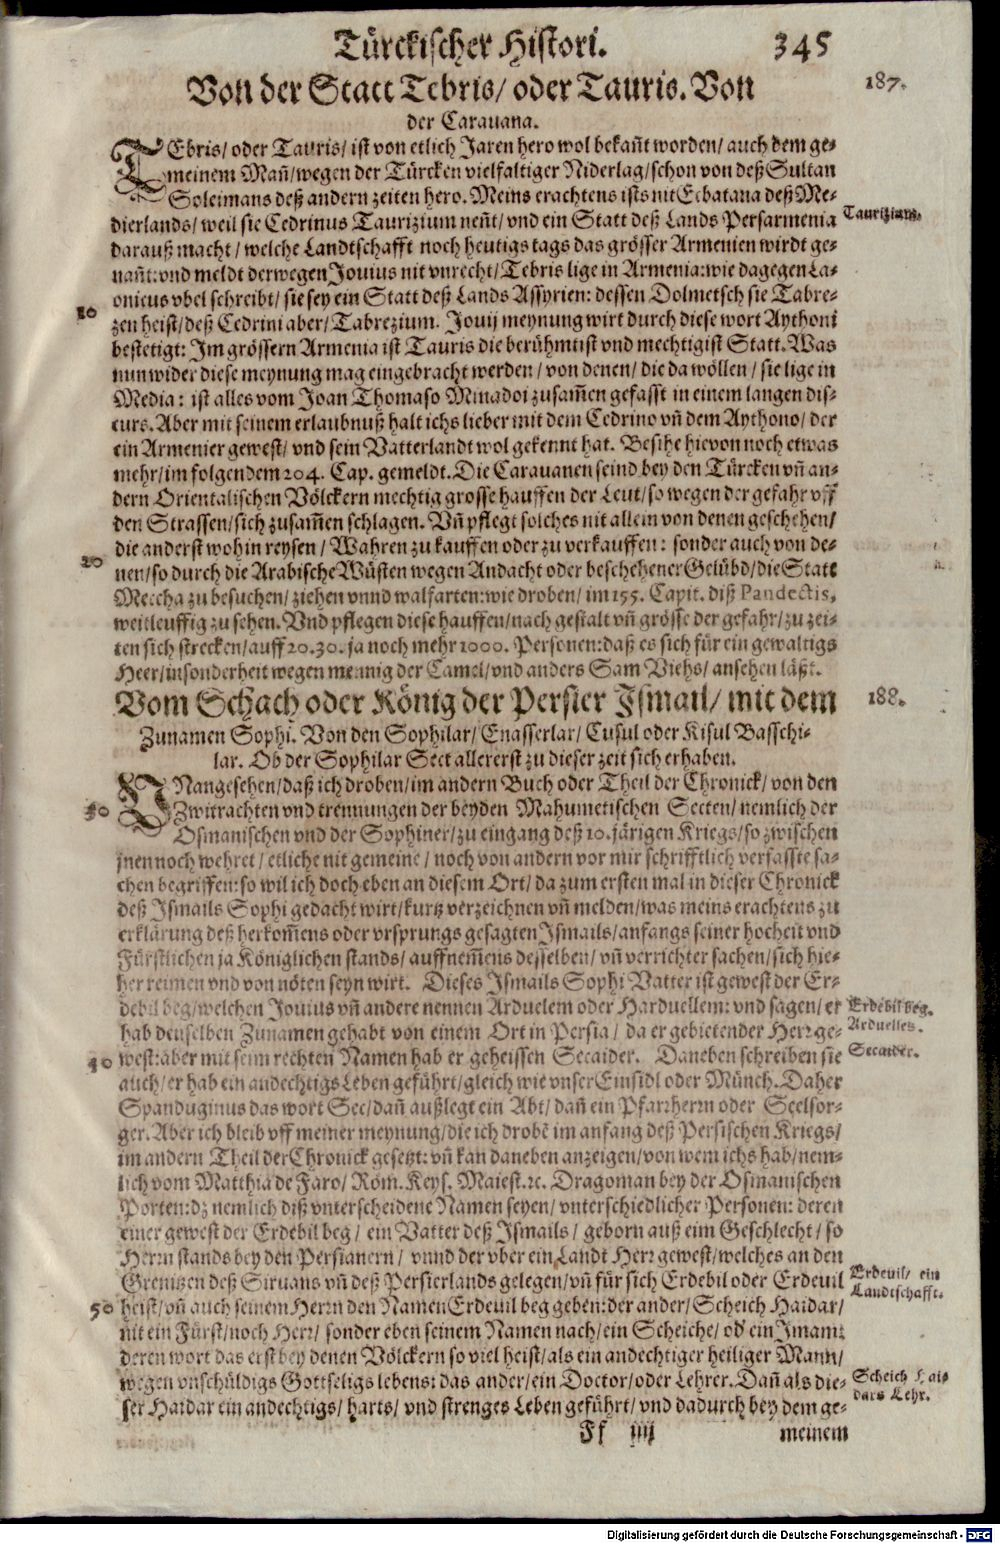 Türckischer Histori. 345
Von der Statt Tebris/ oder Tauris. Von 187.
der Carauana.
TEbris/ oder Tauris/ ist von etlich Jaren hero wol bekañt worden/ auch dem ge-
meinem Mañ/ wegen der Türcken vielfaltiger Niderlag/ schon von deß Sultan
Soleimans deß andern zeiten hero. Meins erachtens ists nit Ecbatana deß Me-
dierlands/ weil sie Cedrinus Taurizium neñt/ vnd ein Statt deß Lands Persarmenia Taurizium.
darauß macht/ welche Landtschafft noch heutigs tags das grösser Armenien wirdt ge-
nañt: vnd meldt derwegen Jouius nit vnrecht/ Tebris lige in Armenia: wie dagegen La-
onicus vbel schreibt/ sie sey ein Statt deß Lands Assyrien: dessen Dolmetsch sie Tabre-
10 zen heist/ deß Cedrini aber/ Tabrezium. Jouij meynung wirt durch diese wort Aythoni
bestetigt: Im grössern Armenia ist Tauris die berühmtist vnd mechtigist Statt. Was
nun wider diese meynung mag eingebracht werden/ von denen/ die da wöllen/ sie lige in
Media: ist alles vom Joan Thomaso Minadoi zusam̃en gefasst in einem langen dis-
curs. Aber mit seinem erlaubnuß halt ichs lieber mit dem Cedrino vñ dem Aythono/ der
ein Armenier gewest/ vnd sein Vatterlandt wol gekennt hat. Besihe hievon noch etwas
mehr/ im folgendem 204. Cap. gemeldt. Die Carauanen seind bey den Türcken vñ an-
dern Orientalischen Völckern mechtig grosse hauffen der Leut/ so wegen der gefahr vff
den Strassen/ sich zusam̃en schlagen. Vñ pflegt solches nit allein von denen geschehen/
die anderst wohin reysen/ Wahren zu kauffen oder zu verkauffen: sonder auch von de-
20 nen/ so durch die Arabische Wüsten wegen Andacht oder beschehener Gelübd/ die Statt
Meccha zu besuchen/ ziehen vnnd walfarten: wie droben/ im 155. Capit. diß Pandectis,
weitleuffig zu sehen. Vnd pflegen diese hauffen/ nach gestalt vñ grösse der gefahr/ zu zei-
ten sich strecken/ auff 20. 30. ja noch mehr 1000. Personen: daß es sich für ein gewaltigs
Heer/ insonderheit wegen mennig der Camel/ vnd anders Sam Viehs/ ansehen läßt.
Vom Schach oder König der Persier Ismail/ mit dem 188.
Zunamen Sophi. Von den Sophilar/ Enasserlar/ Cusul oder Kisul Basschi-
lar. Ob der Sophilar Sect allererst zu dieser zeit sich erhaben.
VNangesehen/ daß ich droben/ im andern Buch oder Theil der Chronick/ von den
30 Zwitrachten vnd trennungen der beyden Mahumetischen Secten/ nemlich der
Osmanischen vnd der Sophiner/ zu eingang deß 10. järigen Kriegs/ so zwischen
jnen noch wehret/ etliche nit gemeine/ noch von andern vor mir schrifftlich verfasste sa-
chen begriffen: so wil ich doch eben an diesem Ort/ da zum ersten mal in dieser Chronick
deß Ismails Sophi gedacht wirt/ kurtz verzeichnen vñ melden/ was meins erachtens zu
erklärung deß herkom̃ens oder vrsprungs gesagten Ismails/ anfangs seiner hocheit vnd
Fürstlichen ja Königlichen stands/ auffnem̃ens desselben/ vñ verrichter sachen/ sich hie-
her reimen vnd von nöten seyn wirt. Dieses Ismails Sophi Vatter ist gewest der Er-
debil beg/ welchen Jouius vñ andere nennen Arduelem oder Harduellem: vnd sagen/ er Erdebil beg.
hab denselben Zunamen gehabt von einem Ort in Persia/ da er gebietender Herr ge- Arduelles.
40 west: aber mit seim rechten Namen hab er geheissen Secaider. Daneben schreiben sie Secaider.
auch/ er hab ein andechtigs Leben geführt/ gleich wie vnser Einsidl oder Münch. Daher
Spanduginus das wort Sec/ dañ außlegt ein Abt/ dañ ein Pfarrherrn oder Seelsor-
ger. Aber ich bleib vff meiner meynung/ die ich drobē im anfang deß Persischen Kriegs/
im andern Theil der Chronick gesetzt: vñ kan daneben anzeigen/ von wem ichs hab/ nem-
lich vom Matthia de Faro/ Röm. Keys. Maiest. ꝛc. Dragoman bey der Osmanischen
Porten: dz nemlich diß vnterscheidene Namen seyen/ vnterschiedlicher Personen: deren
einer gewest der Erdebil beg/ ein Vatter deß Ismails/ geborn auß eim Geschlecht/ so
Herrn stands bey den Persianern/ vnnd der vber ein Landt Herr gewest/ welches an den
Grentzen deß Siruans vñ deß Persierlands gelegen/ vñ für sich Erdebil oder Erdeuil Erdeuil/ ein
50 heist/ vñ auch seinem Herrn den Namen Erdeuil beg geben: der ander/ Scheich Haidar/ Landtschafft.
nit ein Fürst/ noch Herr/ sonder eben seinem Namen nach/ ein Scheiche/ od' ein Imam:
deren wort das erst bey denen Völckern so viel heist/ als ein andechtiger heiliger Mann/
wegen vnschüldigs Gottseligs lebens: das ander/ ein Doctor/ oder Lehrer. Dañ als die- Scheich Hai-
ser Haidar ein andechtigs/ harts/ vnd strenges Leben geführt/ vnd dadurch bey dem ge- dars Lehr.
Ff iiij meinem
Digitalisierung gefördert durch die Deutsche Forschungsgemeinschaft - DFG